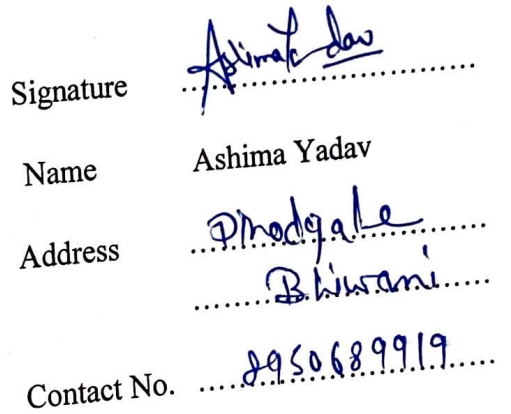 Signature AshimaYadav
Name Ashima Yadav
Address Dinodgate
Bhiwani
Contact No. 8950689919